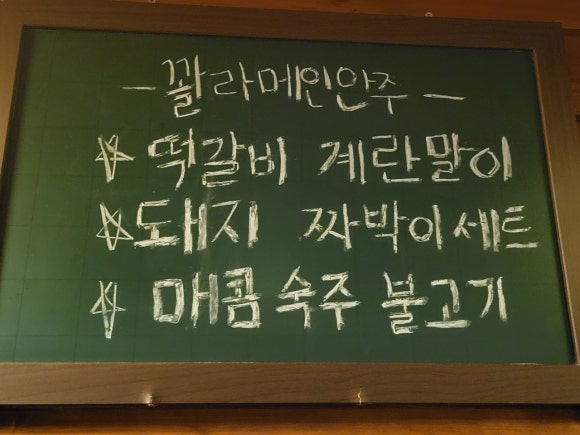 -꽐라메인안주 -
☆ 떡갈비 계란말이
☆ 돼지 짜박이세트
☆ 매콤 숙주 불고기